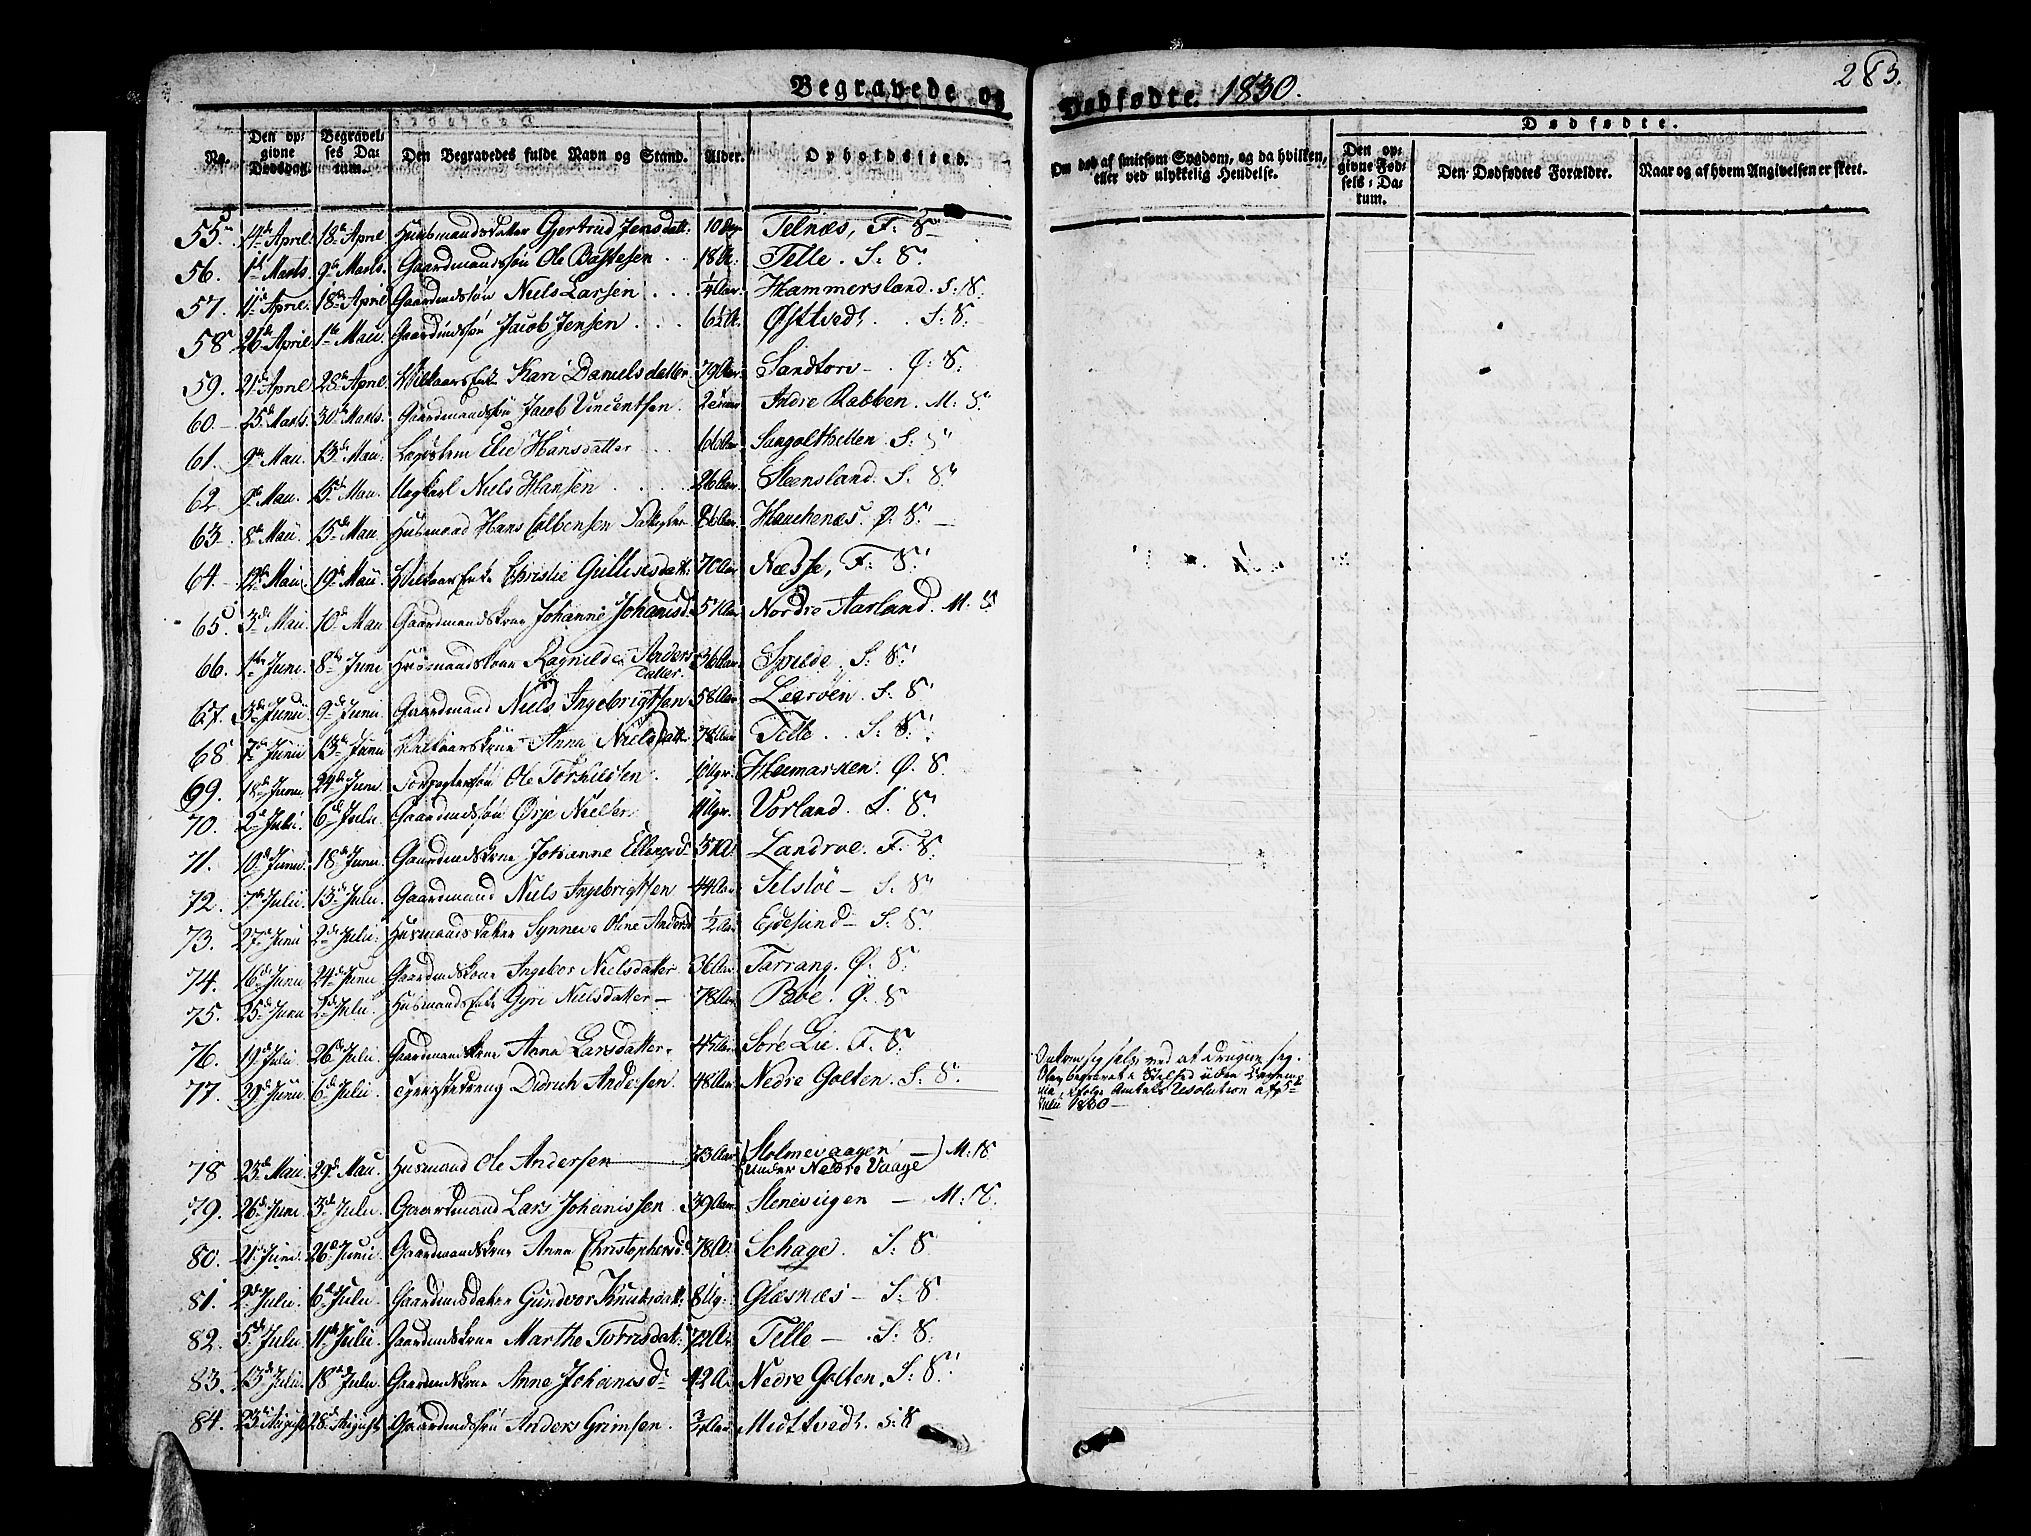 Begravede og
Dødfødte. 1830.
283.
No.
Den opgivne Dødsdag.
Begravelses Datum.
Den Begravedes fulde Navn og Stand.
Alder.
Opholdssted.
Om død af smitsom Sygdom, og da hvilken, eller ved ulykkelig Hendelse.
Dødfødte.
Den opgivne Fødsels-Datum.
Den Dødfødtes Forældre.
Naar og af hvem Angivelsen er skeet.
55. 14de April. 18de April Huusmandsdatter Gjertrud Jensdatt: Telnæs, F. S.
56. 1ste Marts. 9de Marts. Gaardmandssøn Ole Bastesen 18 A. Telle. S: S.
57. 11te April. 18de April Gaardmdssøn Niels Larsen 1/4 Aar. Hammersland. S: S:
58 26de April. 1ste Maii. Gaardmdssøn Jacob Jensen 6 1/2 A. Østtvedt. S: S:
59. 21de April 28de April Vilkaarsenke Kari Danielsdatter 79 Aar. Sandtorv Ø: S:
60 25de Marts. 30te Marts. Gaardmandssøn Jacob Vincentsen. Indre Rabben. M: S.
61. 9de Maii 13de Maii. Lægdslem Elie Hansdatter 66 Aar. Sangolthellen S: S
62 9de Maii. 15de Maii. Ungkarl Niels Hansen 26 Aar. Steensland. S. S
63 8de Maii 15de Maii Husmand Hans Colbensen 86 Aar. Hauchenæs. Ø: S.
64. 12te Maii. 19de Maii Vilkaarsenke Christie Gullisesdatt: 70 Aar Næsse, F. S.
65. 3de Maii. 10de Maii Gaardmandskone Johanne Johanisd. 57 Aar Nordre Aarland. M: S
66. 1ste Juni. 8de Juni Husmandskone Ragnilde Anders
datter. 36 Aar. Spilde. S: S.
67. 3de Junii 9de Junii. Gaardmand Niels Ingebrigtsen 58 Aar Leerøen. S: S
68 7de Junii 13de Junii Vilkaarskone Anna Nielsdatter 74 Aar Telle. S: S.
69. 18de Junii 24de Juni. Ole Torkilsen. 10 Ugr. Hiemarken. Ø. S.
70. 2de Julii. 6te Julii. Gaardmdssøn Ørje Nielsen 11 Ugr. Vorland. S. S.
71. 10de Junii 18de Junii. Gaardmdskone Johanne Ellingsd. 51 A. Landroe. F. S.
72. 7de Julii. 13de Julii. Gaardmand Niels Ingebrigtsen 44 Aar. Selstøe S: S
73. 27de Junii 2de Julii. Husmandsdatter Synneve Oline Andersd 1/2 Aar Eidesund S: S.
74. 16de Junii 24de Junii Gaardmdskone Ingebor Nielsdatter. 36 Aar. Tarrang. Ø. S.
75. 25de Junii 2de Julii Husmandsenke Gyri Nielsdatter 78 Aar. Bøbe. Ø. S
76. 19de Julii 26de Julii. Gaardmandskone Anna Larsdatter. 45 Aar. Søre Lie. F. S.
77. 29de Junii 6te Julii. Didrich Andersen. 48 Aar. Nedre Golten. S: S.
Omkom sig selv, ved at drugne sig.
Blev begravet i Stilhed uden Ceremo-
nie, ifølge Amtets Resolution af 5te
Julii 1830
78 23de Maii 29de Maii. Husmand Ole Andersen 73 Aar Stolmevaagen M: S
under Nedre Vaage
79. 26de Juni 3de Julii. Gaardmand Lars Johanissen 39 Aar. Stenevigen M: S.
80. 21de Juni. 26de Junii. Gaardmandskone Anna Christophersd. 78 A. Schage. S: S
81. 2de Julii. 6te Julii. Gaardmdsdatter Gundvor Knudsdatt. 8 Ug: Glæsnæs S: S.
82. 5de Julii 11te Julii. Gaardmdskone Marthe Torrisdat: 72 A. Telle S: S:
83. 13de Julii 18de Julii. Gaardmdskone Anne Johanisd. 42 A. Nedre Golten. S: S.
84. 23de August 28de August. Gaardmdssøn Anders Grimsen. 3/4 Aar Midttvedt. S: S